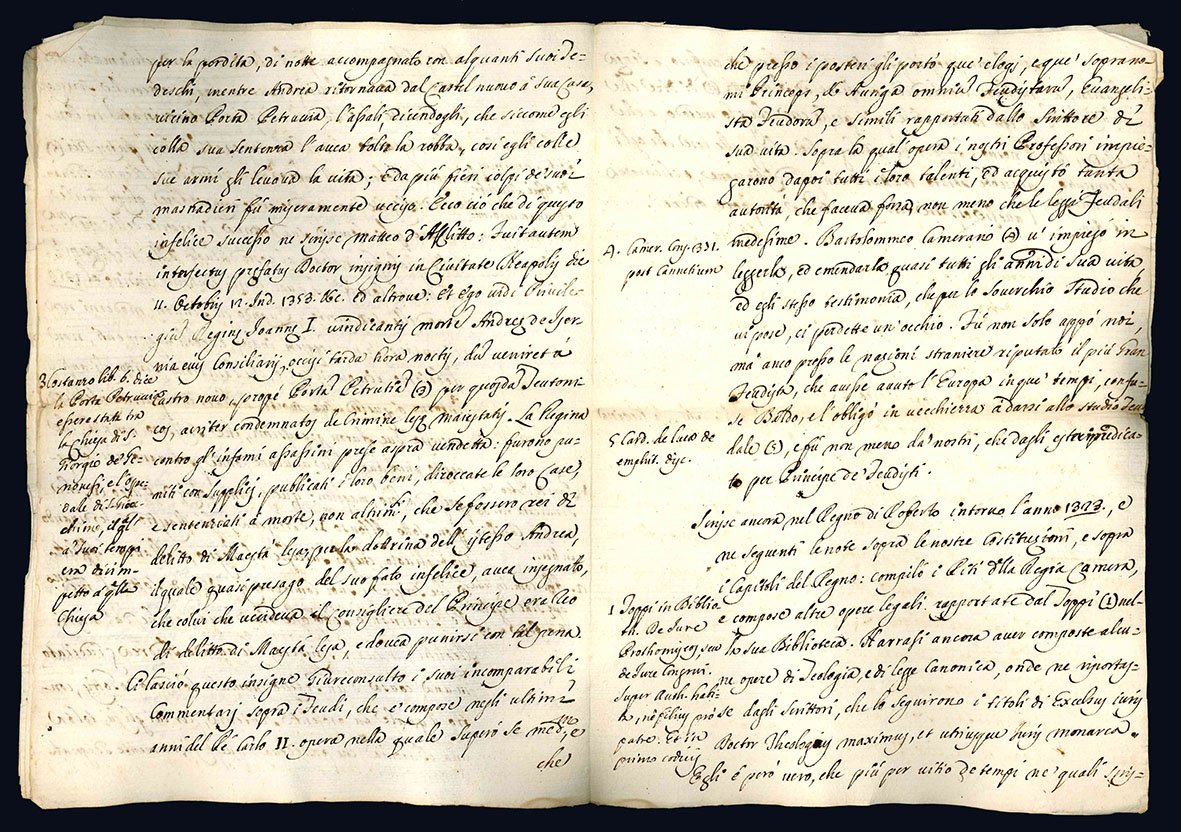 per la perdita, di notte accompagnato con alquanti suoi Te-
deschi, mentre Andrea ritornava dal Castel nuovo a sua Casa,
vicino Porta Petruccia l'assalì dicendogli, che siccome egli
colla sua sentenza l'avea tolta la robba, così egli colle
sue armi gli levava la vita; e da più fieri colpi de' suoi
masnadieri fù miseramente ucciso. Ecco ciò che di questo
infelice successo ne scrisse Matteo d'Afflitto: Fuit autem
interfectus prefatus Doctor insignis in Civitate Neapolis die
11. Octobris 12. Ind. 1353. &c. ed altrove: Et Ego vidi Privile-
giũ Reginę Joannę I. vindicantis mortẽ Andreę de Iser-
nia eius Consiliarij, occisi tarda hora noctis, dũ veniret à
Castro novo, propè Portã Petrutiã (3) per quosdã Teutoni
cos, acriter condemnatos de Crimine lęsę maiestatis. La Regina
contro gl'infami assassini prese aspra vendetta: furono pu-
niti con supplicij, publicati i loro beni, diroccate le loro Case,
e sentenziati à morte, non altrim̃, che se fossero rei di
delitto di Maestà lesa, per la dottrina dell'istesso Andrea,
il quale quasi presago del suo fato infelice, avea insegnato,
che colui che uccideva il Consigliere del Principe era reo
di delitto di Maestà lesa, e dovea punirsi con tal pena.
Ci lasciò questo insigne Giureconsulto i suoi incomparabili
Commentarj sopra i Feudi, che e' compose negli ultimi
anni del Rè Carlo II. opera nella quale superò se med.mo, e
che
3 Costanzo lib. 6. dice
la Porta Petruccia
essere stati tra
la Chiesa di S.
Giorgio de' Ge-
novesi, e l'Ospe-
dale di S. Gioa-
chino, el q̃l
a' suoi tempi
era dirim-
petto a q̃lla
Chiesa
che presso i posteri gli portò que' elogj, e que' sopranno-
mi Princeps, &
omniũ Feudistarũ, Evangeli-
sta Feudorũ, e simili rapportati dallo Scrittore di
sua vita. Sopra la qual'opera i nostri Professori impie-
garono dapoi tutti i loro talenti, ed acquistò tanta
autorità, che faceva forza non meno che le leggi Feudali
medesime. Bartolommeo Camerario (4) v'impiegò in
leggerla, ed emendarla quasi tutti gli anni di sua vita
ed egli stesso testimonia, che per lo soverchio studio che
vi pose, ci perdette un'occhio. Fù non solo appò noi,
mà anco presso le nazioni straniere riputato il più gran
Feudista, che avesse avuto l'Europa in que' tempi, confu-
se Baldo, e l'obligò in vecchiezza a darsi allo studio feu
dale (5), e fù non meno da' nostri, che dagli esteri predica-
to per Principe de' Feudisti.
Scrisse ancora nel Regno di Roberto intorno l'anno 1323., e
ne seguenti le note sopra le nostre Costituzioni, e sopra
i Capitoli del Regno: compilò i Riti d̃lla Regia Camera,
e compose altre opere legali rapportate dal Toppi (1) nel-
la sua Biblioteca. Narrasi ancora aver composte alcu-
ne opere di Teologia, e di legge Canonica, onde ne riportas-
se dagli Scrittori, che lo seguirono i titoli di Excelsus iuris
Doctor Theologus maximus, et utriusque Juris monarca.
Egli è però vero, che più per vitio de tempi ne' quali scris-
4. Camer. Cons. 331.
post Cannetium
5 Card. de Luca de
emphit. disc.
1 Toppi in Biblio
th. De Jure
Prothomyseos seu
de Jure Congrui.
Super Auth. habi-
ta, ne filius pro
patre. Et in
primo codicis